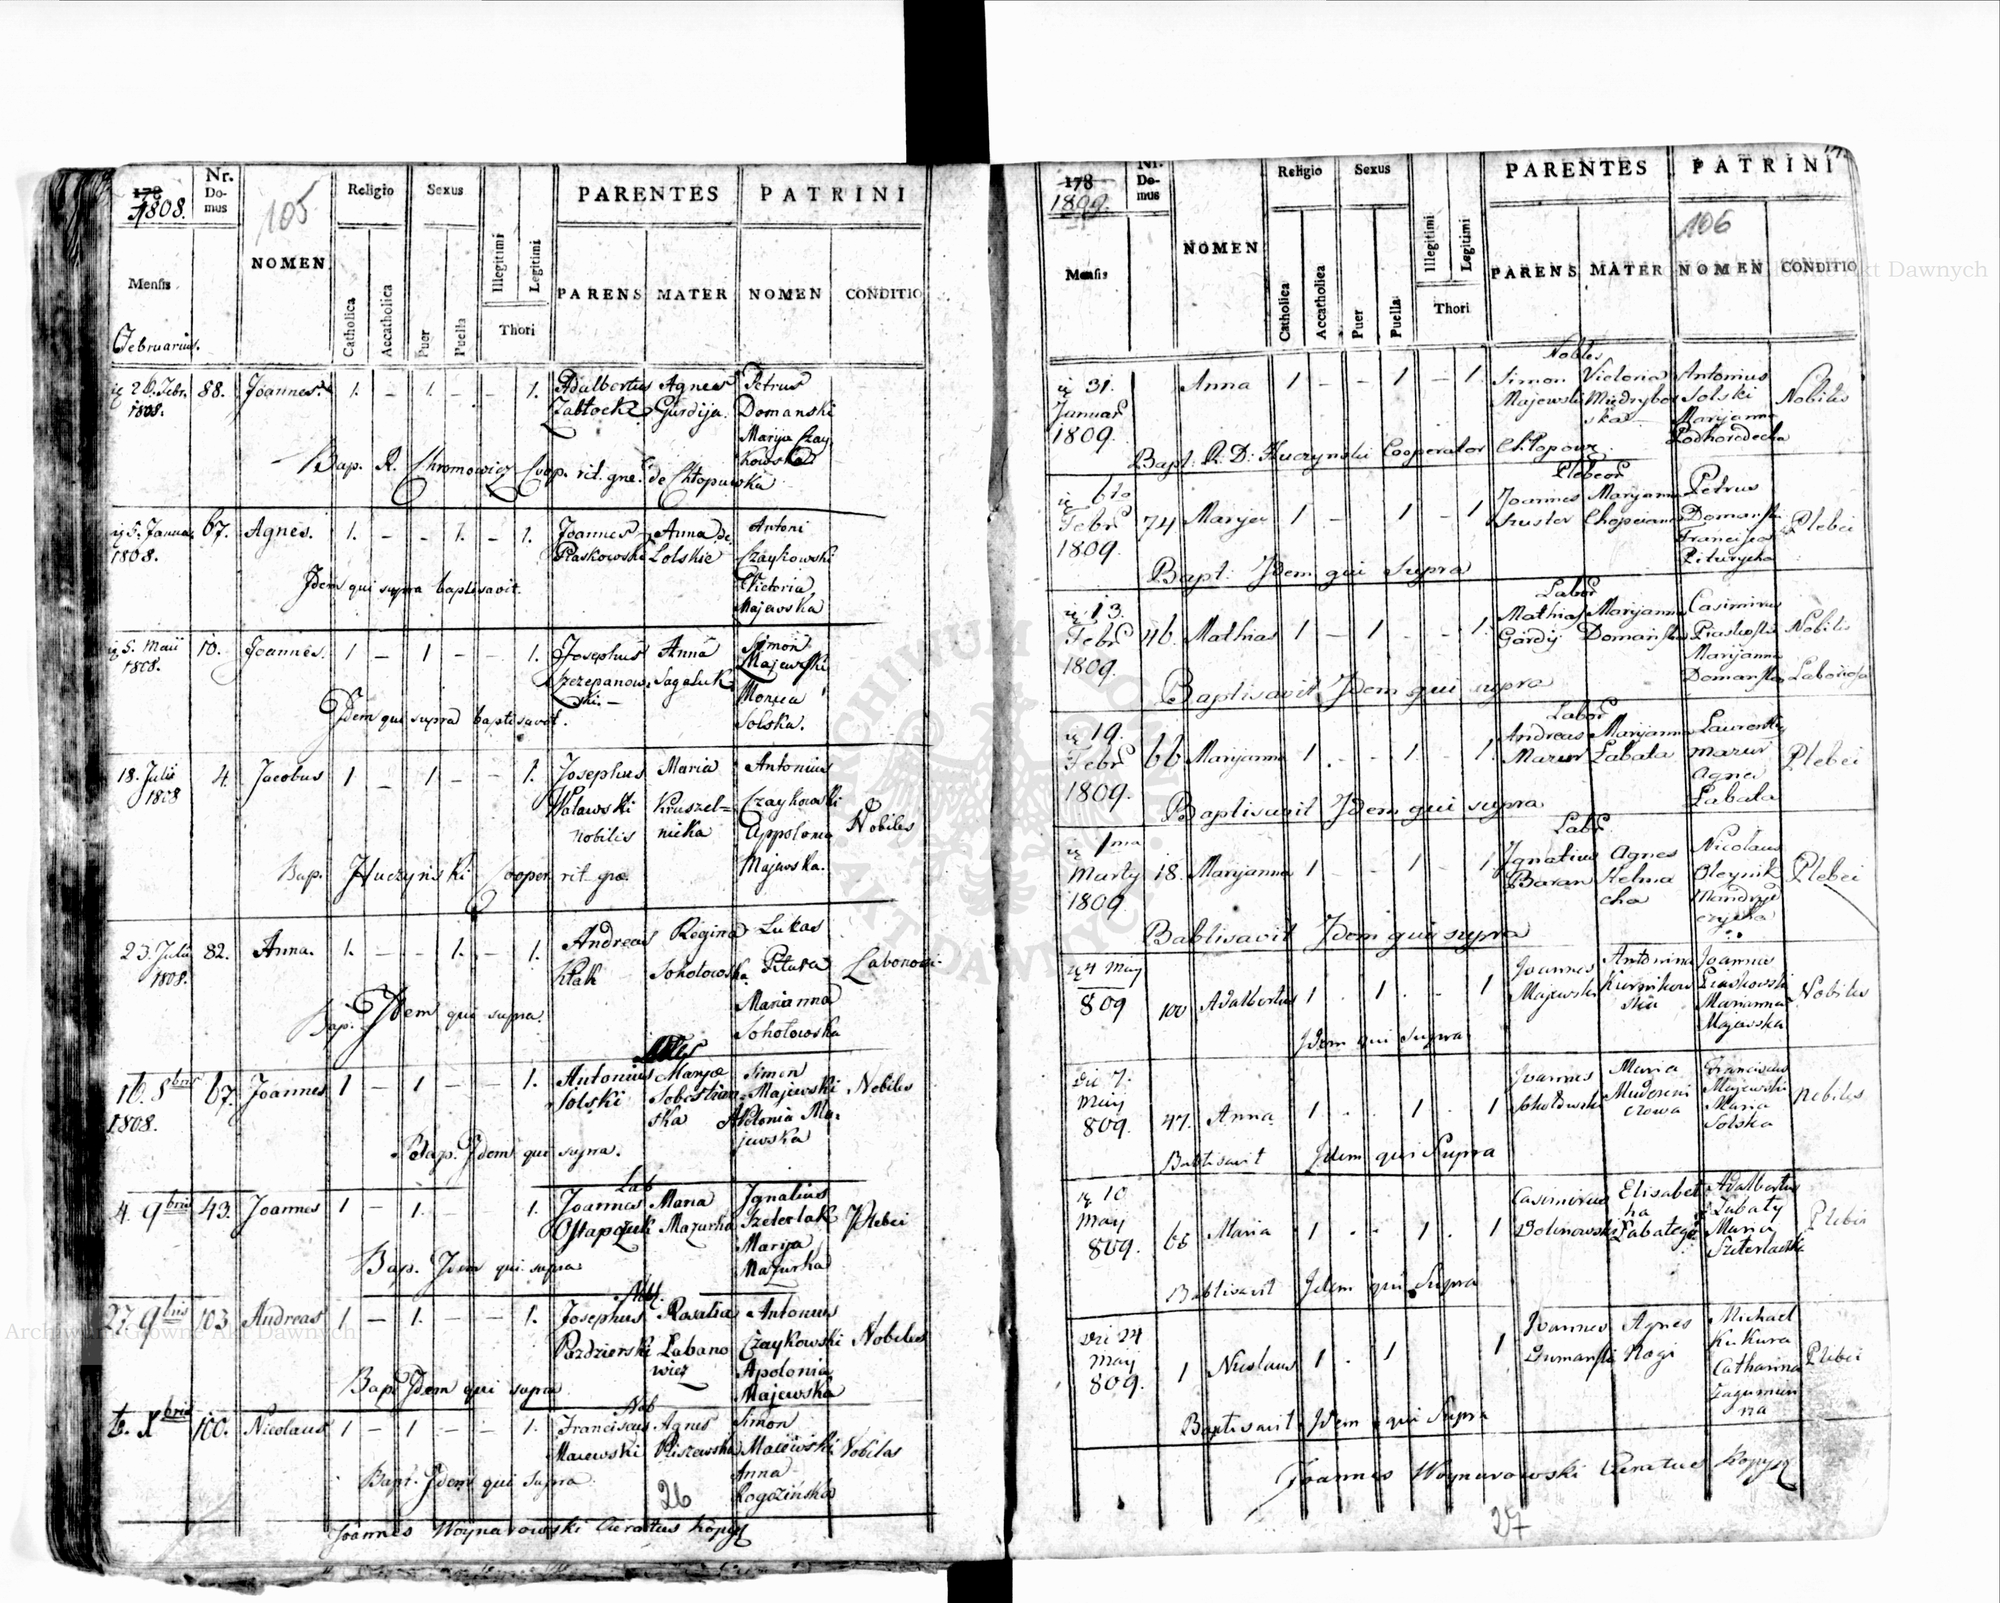 178
1808.
Nr.
Do-
mus
105
Religio
Sexus
PARENTES
PATRINI
Mensis
NOMEN
Catholica
Accatholica
Puer
Puella
Illegitimi
Legitimi
Thori
PARENS
MATER
NOMEN
CONDITIO
Februarius.
26. Febr. 88. Joannes 1. - 1. - - 1. Adalbertus Agnes Petrus
1808. Zabłocki Gurdija. Domanski
Marija Czay
kowska
Bap. R. Chromowicz Coop. rit. gne. de Chłopuwka
5. Januar. 67. Agnes. 1. - - 1. - 1. Joannes Anna de Antoni
1808. Piaskowski Solskie Czaykowski
Victoria
Majewska
Idem qui supra baptisavit.
5. Maii 10. Joannes. 1 - 1 - - 1. Josephus Anna Simon
1808. Szczepanow- Sagaluk Majewski
ski.- Monica
Solska.
Idem qui supra baptisavit.
18. Julii 4. Jacobus 1 - 1 - - 1. Josephus Maria Antonius
1808 Waławski Kruszel= Czaykowski
nobilis nicka Appolonia Nobiles
Majewska.
Bap. Huczyński Cooper. rit. grae.
23. Julii 82. Anna. 1. - - 1. - 1. Andreas Regina Lukas
1808. Kłak Sokołowska Pitura
Marianna
Sokołowska
Bap. Idem qui supra.
16. 8bris 67. Joannes 1 - 1 - - 1. Antonius Marya Simon
1808. Solski Sobestian- Majewski Nobiles
ska Apolonia Ma-
jewska
Bap. Idem qui supra.
Lab
4. 9bris 43. Joannes 1 - 1. - - 1. Joannes Maria Ignatius
Ostapczuk Mazurka Szeterlak Plebei
Marija
Mazurka
Bap. Idem qui supra
Nob.
27. 9bris 103 Andreas 1 - 1. - - 1. Josephus Rosalia Antonius
Pazdzierski Labano Czaykowski Nobiles
wicz Apolonia
Majewska
Bap. Idem qui supra
Nob
Xbris 100. Nicolaus 1 - 1 - - 1. Franciscus Agnes Simon
Maiewski Maiewski Nobiles
Anna
Rogozińska
Bapt. Idem qui Supra
26
Joannes Woynarowski Curatus Kopyę
178
1809.
Nr.
Do-
mus
Religio
Sexus
PARENTES
PATRINI
106
Mensis
NOMEN
Catholica
Accatholica
Puer
Puella
Illegitimi
Legitimi
Thori
PARENS
MATER
NOMEN
CONDITIO
Nobles
31. Anna 1 - - 1 - 1. Simon Victoria Antonius
Januar Majewski Miedrybor Solski Nobiles
1809. ska Marijanna
Podhorodecka
Bapt: R: D: Huczynski Cooperator Chłopow
Plebeor
6to Joannes Marijanna Petrus
Febr 74 Marija 1 - 1 - 1. Szuster Domanski Plebei
1809. Francisca
Piturycha
Bapt: Idem qui Supra
Labor
13. Mathias Marijanna Casimirus
Febr 46. Mathias 1 - 1 - - 1. Gordij Domanska Piaskoski Nobilis
1809. Marijanna
Domanska Laboriosa
Baptisavit Idem qui supra
Labor
19. Andreas Marijanna Laurenty
Febr 66 Marijanna 1 . - 1. - 1. Mazur Labata mazur Plebei
1809. Agnes
Labata
Baptisavit Idem qui supra
Labr
1ma Ignatius Agnes Nicolaus
Marty 18. Marijanna 1 - - 1 - 1. Baran Helma Oleynik Plebei
1809 cha
Bablisavit Idem qui supra
4 May Joannes Antonina Joannes
809 100 Adalbertus 1 . 1 . - 1 Majewski Kurnikow Piaskowski Nobiles
ska Marianna
Majewska
Idem qui supra
Die 7. Joannes Maria Franciscus
May 47. Anna 1 . . 1 . 1 Sokołowski Majewski Nobiles
809. Maria
Solska
Bablisavit Idem qui Supra
10 Casimirus Elisabet Adalbertus
May 66 Maria 1 . - 1 . 1 Dolinowski ha Labaty Plebei
809. Maria
Bablisavit Idem qui Supra
Die 24 Joannes Agnes Michael
May 1 Nicolaus 1 . 1 1 Dumanski Rogi Kukura Plebei
809. Catharina
Zagumien
na
Baptisavit Idem qui Supra
Joannes Woynarowski Curatus Kopyę
27
Archiwum Główne Akt Dawnych
ARCHIWUM GŁÓWNE
AKT DAWNYCH